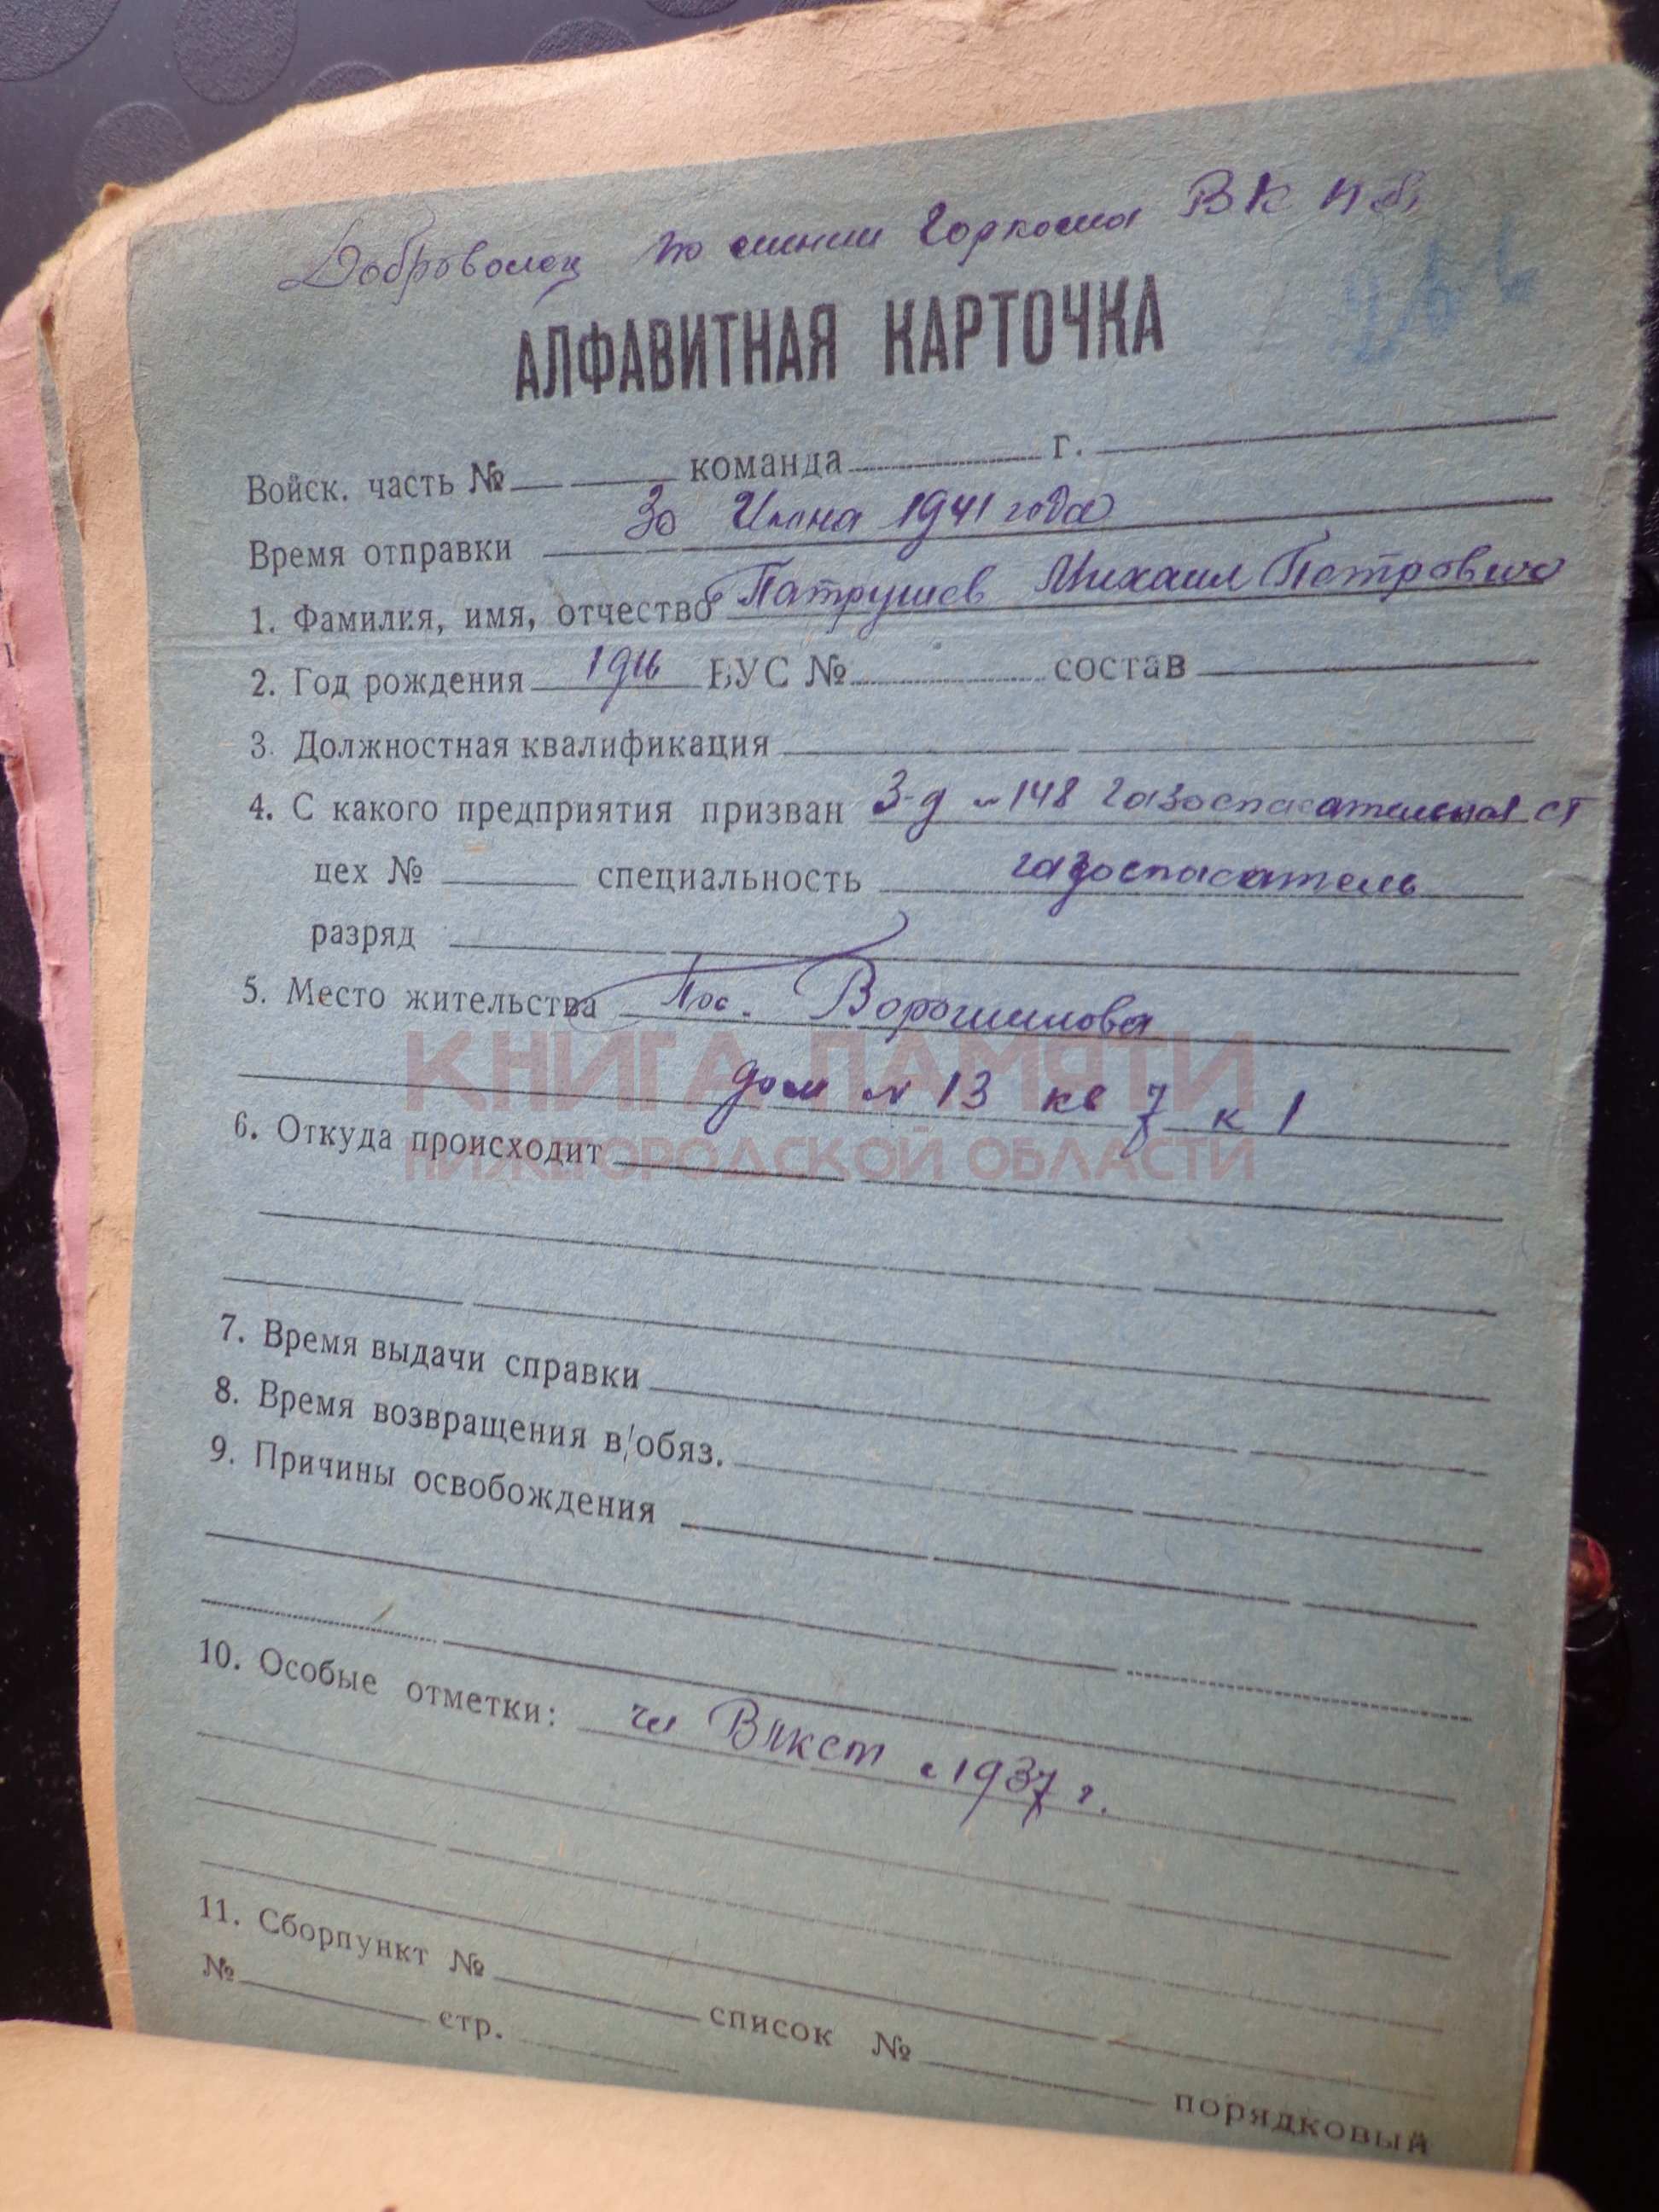 Доброволец по линии Горкома ВК П б,
АЛФАВИТНАЯ КАРТОЧКА
Войск. часть № команда г.
Время отправки 30 Июня 1941 года
1. Фамилия, имя, отчество Патрушев Михаил Петрович
2. Год рождения ВУС № состав
3. Должностная квалификация
4. С какого предприятия призван З-д № 148 газоспасательная ст
цех № специальность газоспасатель
разряд
5. Место жительства Пос. Ворошилова
дом № 13 кв 7 к 1
КНИГА ПАМЯТИ
НИЖЕГОРОДСКОЙ ОБЛАСТИ
6. Откуда происходит
7. Время выдачи справки
8. Время возвращения в/обяз.
9. Причины освобождения
10. Особые отметки: чл Влкст с 1937 г.
11. Сборпункт № список № порядковый
№ стр.